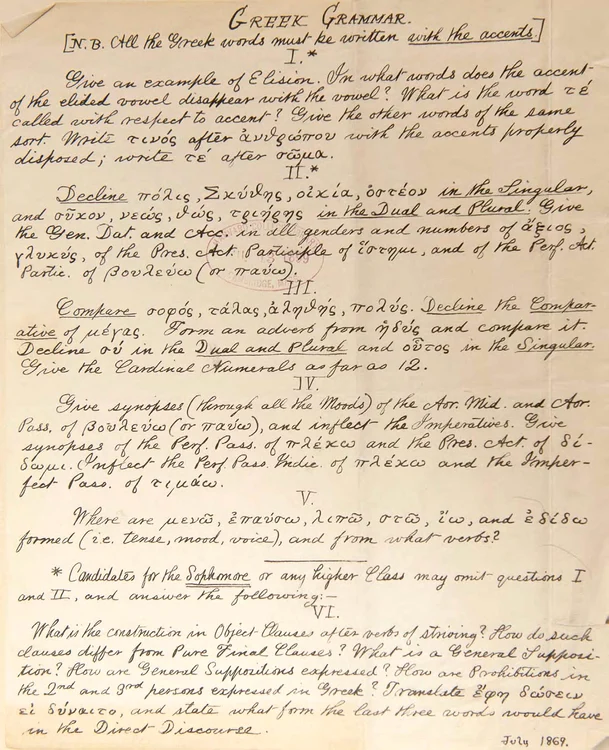 GREEK GRAMMAR.
[N.B. All the Greek words must be written with the accents.]
I.*
Give an example of Elision. In what words does the accent
of the elided vowel disappear with the vowel? What is the word τέ
called with respect to accent? Give the other words of the same
sort. Write τινός after ἀνθρώπου with the accents properly
disposed; write τε after σῶμα.
II.*
Decline πόλις, Σκύθης, οἰκία, ὀστέον in the Singular,
and σῦκον, νεώς, θώς, τριήρης in the Dual and Plural. Give
the Gen. Dat. and Acc. in all genders and numbers of ἄξιος,
γλυκύς, of the Pres. Act. Participle of ἵστημι, and of the Perf. Act.
Partic. of βουλεύω (or παύω).
III.
Compare σοφός, τάλας, ἀληθής, πολύς. Decline the Compar-
ative of μέγας. Form an adverb from ἡδύς and compare it.
Decline σύ in the Dual and Plural and οὗτος in the Singular.
Give the Cardinal Numerals as far as 12.
IV.
Give synopses (through all the Moods) of the Aor. Mid. and Aor.
Pass. of βουλεύω (or παύω), and inflect the Imperatives. Give
synopses of the Perf. Pass. of πλέκω and the Pres. Act. of δί-
δωμι. Inflect the Perf. Pass. Indic. of πλέκω and the Imper-
fect Pass. of τιμάω.
V.
Where are μενῶ, ἐπαύσω, λιπῶ, στῶ, ἴω, and ἐδίδω
formed (i.e. tense, mood, voice), and from what verbs?
* Candidates for the Sophomore or any higher Class may omit questions I
and II, and answer the following:—
VI.
What is the construction in Object Clauses after verbs of striving? How do such
clauses differ from Pure Final Clauses? What is a General Supposi-
tion? How are General Suppositions expressed? How are Prohibitions in
the 2nd and 3rd persons expressed in Greek? Translate ἔφη δώσειν
εἰ δύναιτο, and state what form the last three words would have
in the Direct Discourse.
July 1869.